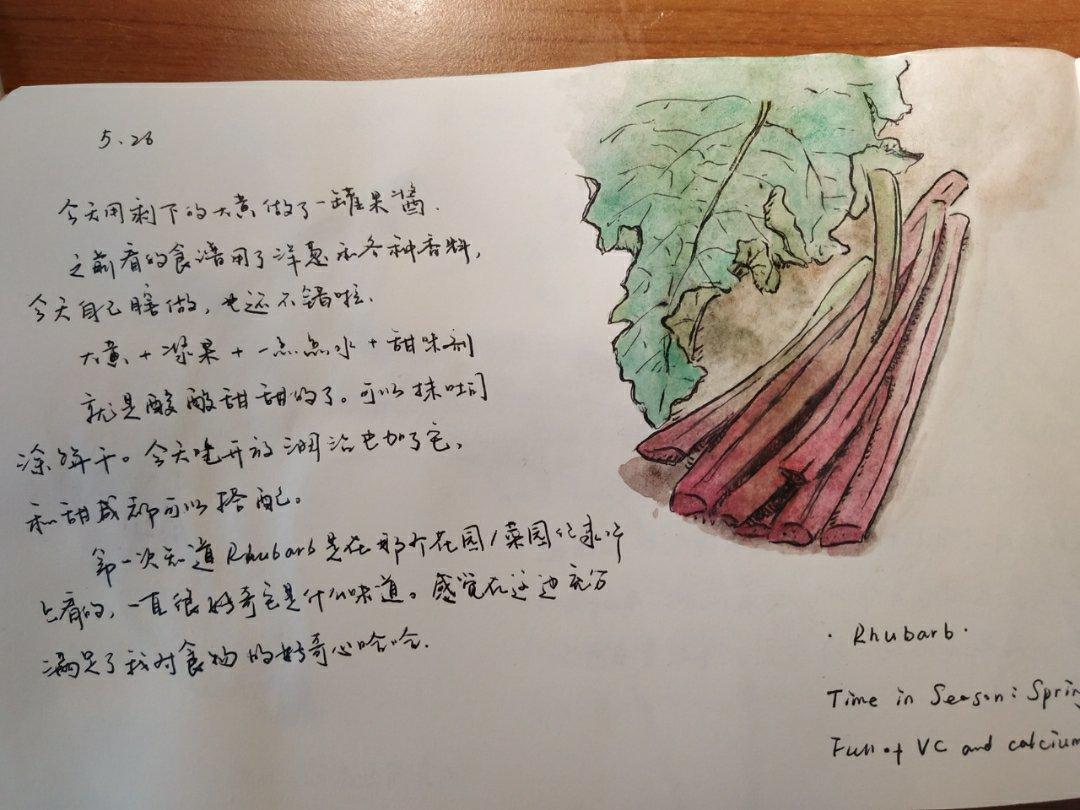 5.26
今天用剩下的大黄做了一罐果酱.
之前看的食谱用了洋葱和各种香料,
今天自己瞎做,也还不错啦.
大黄+凉果+一点点水+甜味剂
就是酸酸甜甜的了。可以抹吐司
涂饼干。今天吃开放三明治也加了它,
和甜咸都可以搭配。
第一次知道Rhubarb是在那个花园/菜园纪录片
上看的,一直很好奇它是什么味道。感觉在这边充分
满足了我对食物的好奇心哈哈.
· Rhubarb ·
Time in Season: Spring
Full of VC and calcium